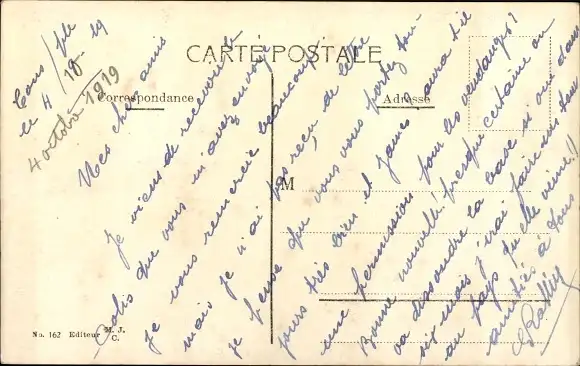 CARTE POSTALE
Correspondance
Adresse
M
No. 162 Editeur M. J. C.
ce 4/10 19
4 octobre 1919
Mes chers amis
Je viens de recevoir le
Colis que vous m'avez envoyé
je vous remercie beaucoup
mais je n'ai pas reçu de lettre
je pense que vous vous portez tou-
jours très bien et James aura t'il
une permission pour les vendanges?
Bonne nouvelle! presque certaine on
va dissoudre la base si oui dans
six mois j'irai faire mes
au pays qu'elle veine!!
amitiés à tous